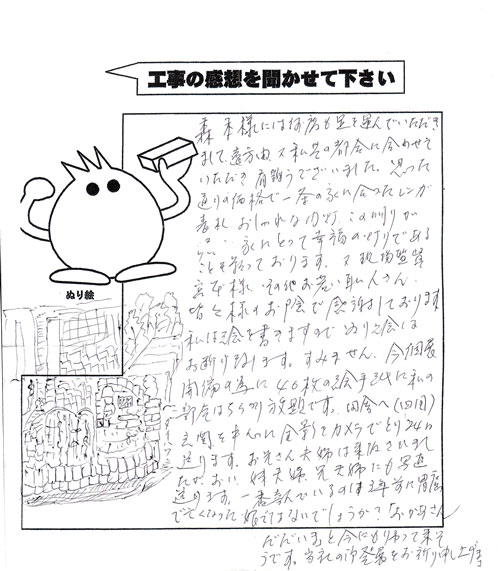 工事の感想を聞かせて下さい
森本様には何度も足を運んでいただき
まして、遠方由、又私共の都合に合わせて
いただき有難うございました。思った
通りの価格で一条の家に合ったレンガ
表札、おしゃれな門灯、この灯りが
家にとって幸福の灯りである
ことを祈っております。又現場監督
宮本様、その他お若い職人さん、
皆々様のお陰で感謝しております
ぬり絵
私は絵を書きますのでぬり絵は
お断り致します。すみません。今個展
開催の為に40枚の絵手紙に私の
新居は55切り放題です。田舎へ(四国)
玄関を中心に全景をカメラでとり24㎝
送ります。お兄さん夫婦は来阪されまし
たが、おい、姉夫婦、兄夫婦にも写真
送ります。一番喜んでいるのは3年前に胃癌
で亡くなった娘ではないでしょうか?「おかあさん
ただいま」と今にもりかえって来そ
うです。当社の御発展をお祈り申し上げます